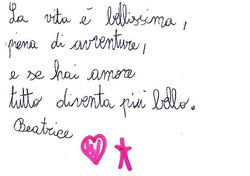 La vita è bellissima,
piena di avventure,
e se hai amore
tutto diventa più bello.
Beatrice